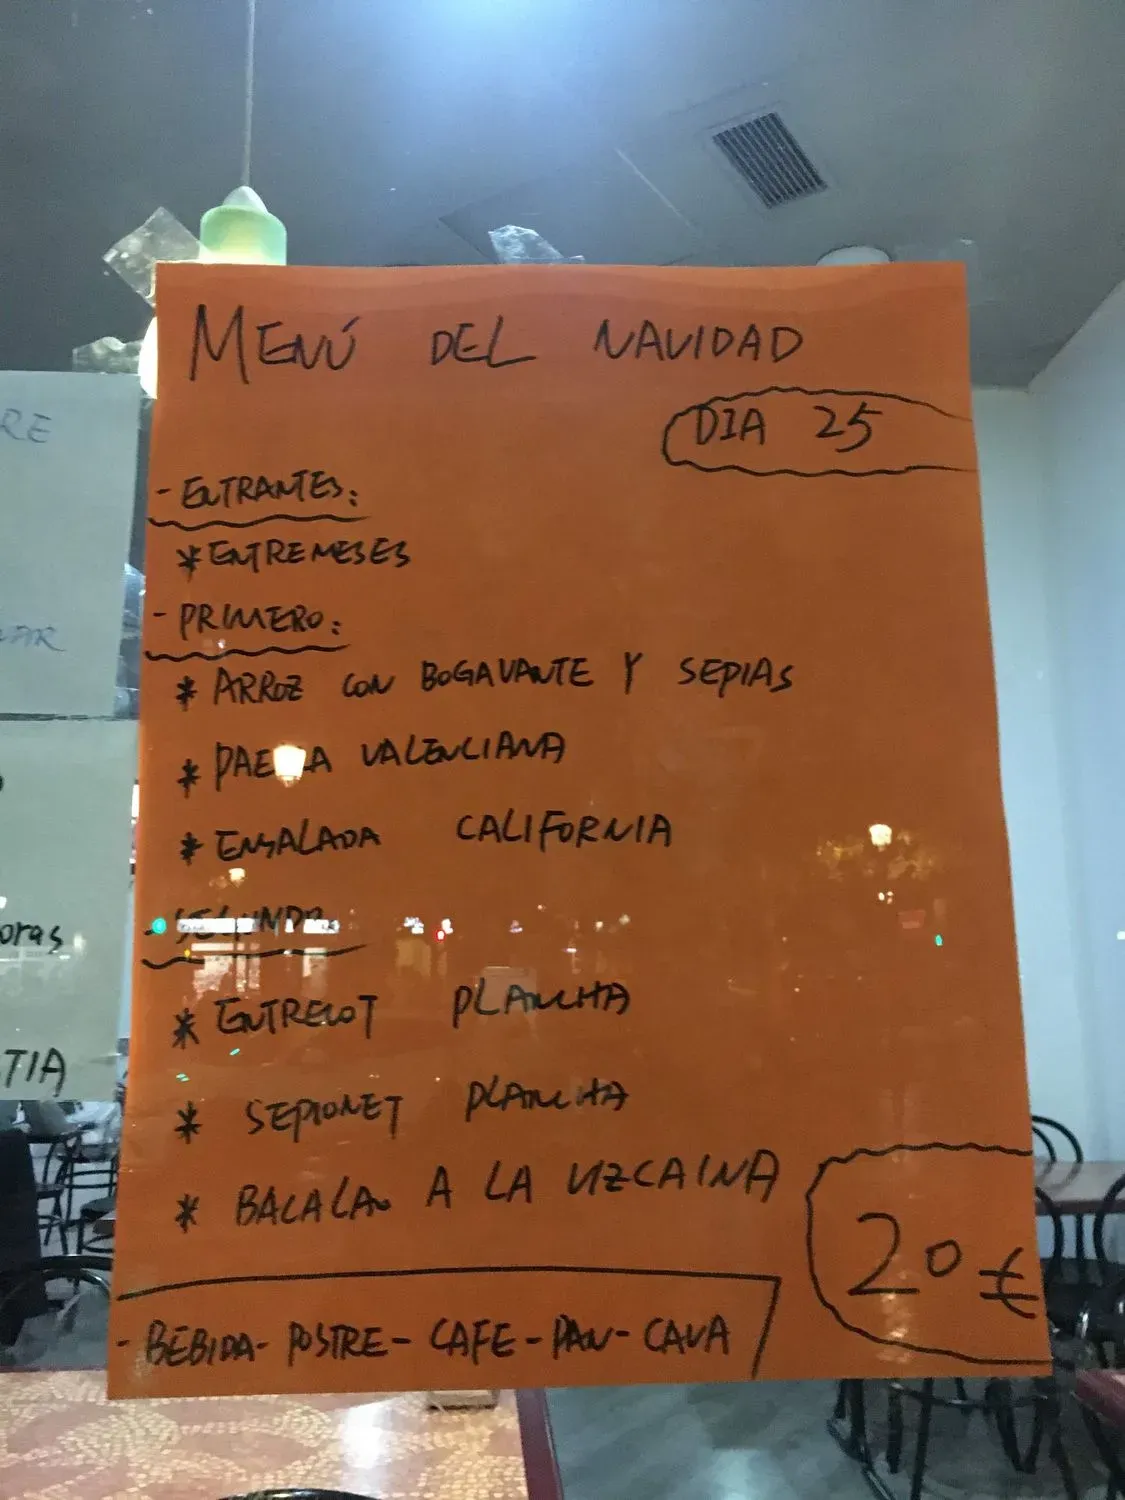 MENÚ DEL NAVIDAD
DIA 25
- ENTRANTES:
* ENTREMESES
- PRIMERO:
* ARROZ CON BOGAVANTE Y SEPIAS
* PAELLA VALENCIANA
* ENSALADA CALIFORNIA
- SEGUNDO
* ENTRECOT PLANCHA
* SEPIONET PLANCHA
* BACALAO A LA VIZCAINA
20 €
- BEBIDA - POSTRE - CAFE - PAN - CAVA
RE
oras
TIA